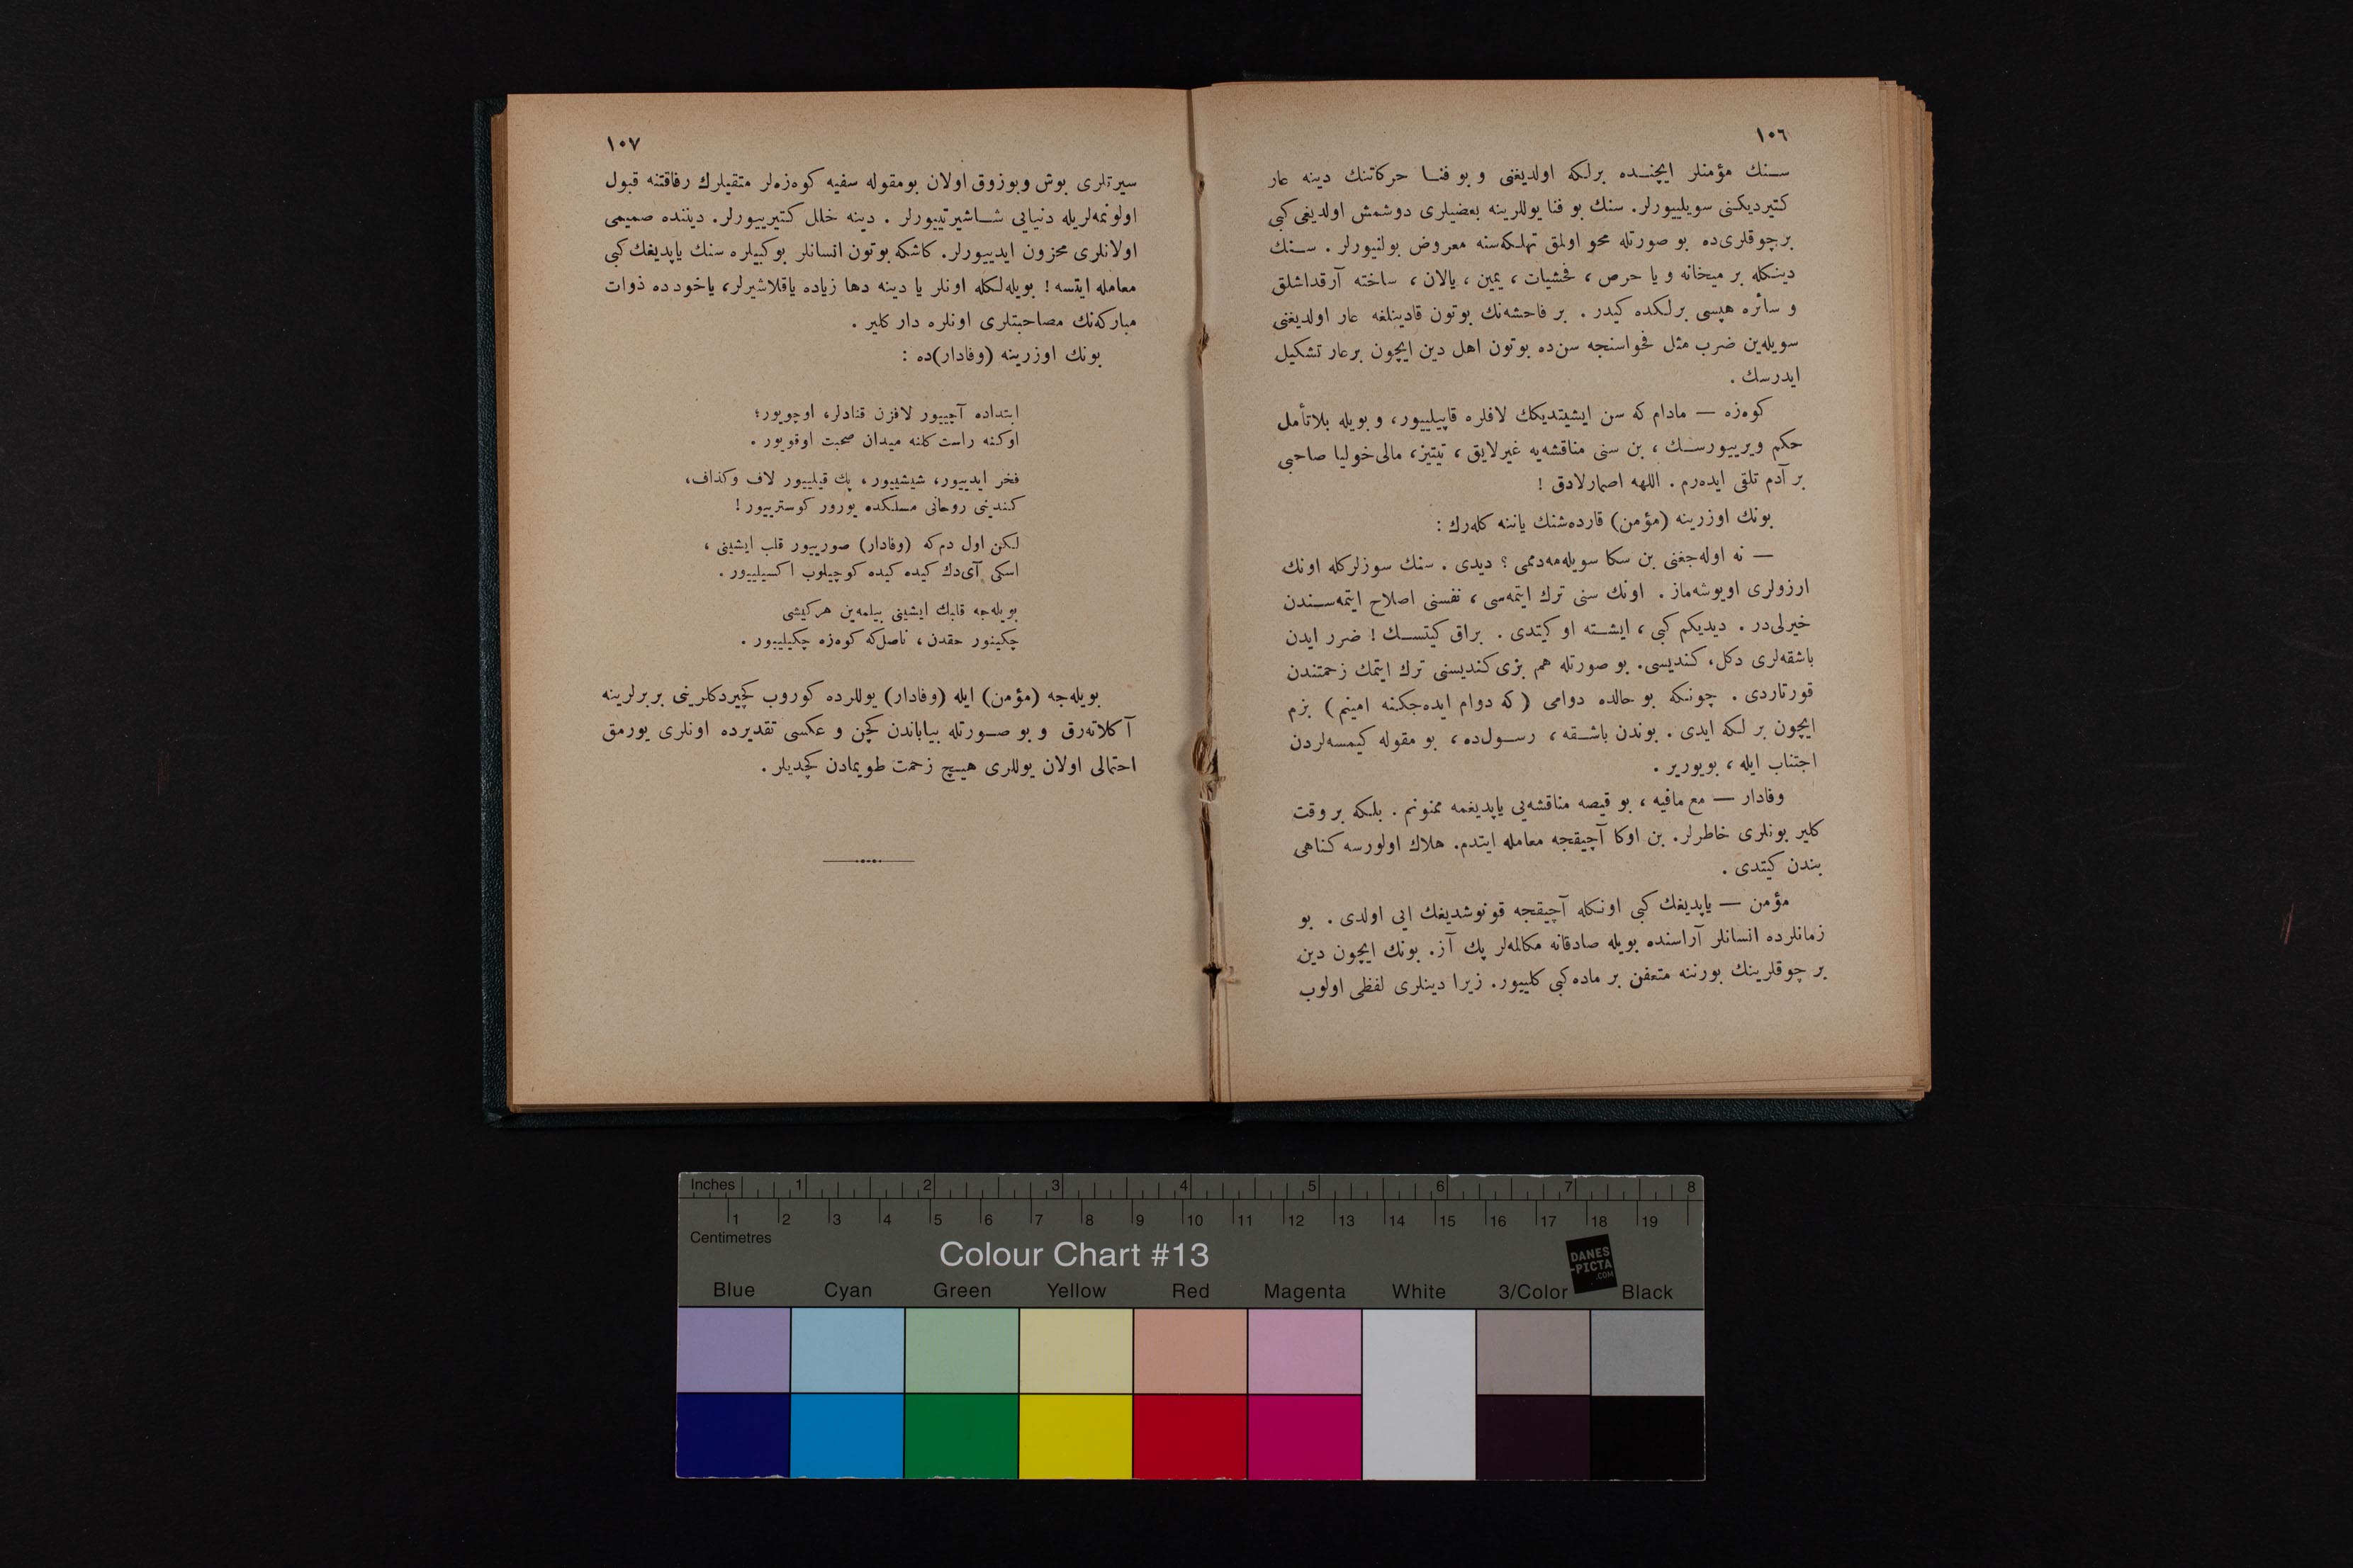 ١٠٦
سنك مؤمنلر ایچنده برلكه اولدیغنی و بو فنا حركاتنك دینه عار
كتیردیكنی سویلییورلر. سنك بو فنا یوللرینه بعضیلری دوشمش اولدیغی كبی
برچوقلری‌ده بو صورتله محو اولمق تهلكه‌سنه معروض بولنیورلر . سنك
دینكله بر میخانه و یا حرص ، فحشیات ، یمین ، یالان ، ساخته آرقداشلق
و سائره هپسی برلكده كیدر . بر فاحشه‌نك بوتون قادینلغه عار اولدیغنی
سویله‌ین ضرب مثل فحواسنجه سن‌ده بوتون اهل دین ایچون برعار تشكیل
ایدرسك .
كوه‌زه — مادام كه سن ایشیتدیكك لافلره قاپیلییور، و بویله بلاتأمل
حكم ویرییورسك ، بن سنی مناقشه‌یه غیرلایق ، تیتیز، مالی‌خولیا صاحبی
بر آدم تلقی ایده‌رم . اللهه اصمارلادق !
بونك اوزرینه (مؤمن) قارده‌شنك یاننه كله‌رك :
— نه اوله‌جغنی بن سكا سویله‌مه‌دممی ؟ دیدی . سنك سوزلركله اونك
ارزولری اویوشه‌ماز . اونك سنی ترك ایتمه‌سی ، نفسنی اصلاح ایتمه‌سندن
خیرلی‌در . دیدیكم كبی ، ایشته او كیتدی . براق كیتسك ! ضرر ایدن
باشقه‌لری دكل، كندیسی. بو صورتله هم بزی كندیسنی ترك ایتمك زحمتندن
قورتاردی . چونكه بو حالده دوامی (كه دوام ایده‌جكنه امینم) بزم
ایچون بر لكه ایدی . بوندن باشقه ، رسول‌ده ، بو مقوله كیمسه‌لردن
اجتناب ایله ، بویوریر .
وفادار — مع مافیه ، بو قیصه مناقشه‌یی یاپدیغمه ممنونم . بلكه بر وقت
كلیر بونلری خاطرلر. بن اوكا آچیقجه معامله ایتدم. هلاك اولورسه كناهی
بندن كیتدی .
مؤمن — یاپدیغك كبی اونكله آچیقجه قونوشدیغك ایی اولدی . بو
زمانلرده انسانلر آراسنده بویله صادقانه مكالمه‌لر پك آز. بونك ایچون دین
بر چوقلرینك بورننه متعفن بر ماده كبی كلییور. زیرا دینلری لفظی اولوب
١٠٧
سیرتلری بوش وبوزوق اولان بومقوله سفیه كوه‌زه‌لر متقیلرك رفاقتنه قبول
اولونمه‌لریله دنیایی شاشیرتییورلر . دینه خلل كتیرییورلر. دیننده صمیمی
اولانلری محزون ایدییورلر. كاشكه بوتون انسانلر بوكبیلره سنك یاپدیغك كبی
معامله ایتسه ! بویله‌لكله اونلر یا دینه دها زیاده یاقلاشیرلر، یاخود ده ذوات
مباركه‌نك مصاحبتلری اونلره دار كلیر .
بونك اوزرینه (وفادار)ده :
ابتداده آچییور لافزن قنادلر، اوچویور؛
اوكنه راست كلنه میدان صحبت اوقویور .
فخر ایدییور، شیشییور، پك قیلییور لاف وكذاف،
كندینی روحانی مسلكده یورور كوسترییور !
لكن اول دم كه (وفادار) صورییور قلب ایشینی ،
اسكی آی‌دك كیده كیده كوچیلوب اكسیلییور .
بویله‌جه قلبك ایشینی بیلمه‌ین هركیشی
چكینور حقدن ، ناصل كه كوه‌زه چكیلییور .
بویله‌جه (مؤمن) ایله (وفادار) یوللرده كوروب كچیردكلرینی بربرلرینه
آكلاته‌رق و بو صورتله بیاباندن كچن و عكسی تقدیرده اونلری یورمق
احتمالی اولان یوللری هیچ زحمت طویمادن كچدیلر .
Inches 1 2 3 4 5 6 7 8
1 2 3 4 5 6 7 8 9 10 11 12 13 14 15 16 17 18 19
Centimetres
Colour Chart #13
DANES
-PICTA
.COM
Blue Cyan Green Yellow Red Magenta White 3/Color Black